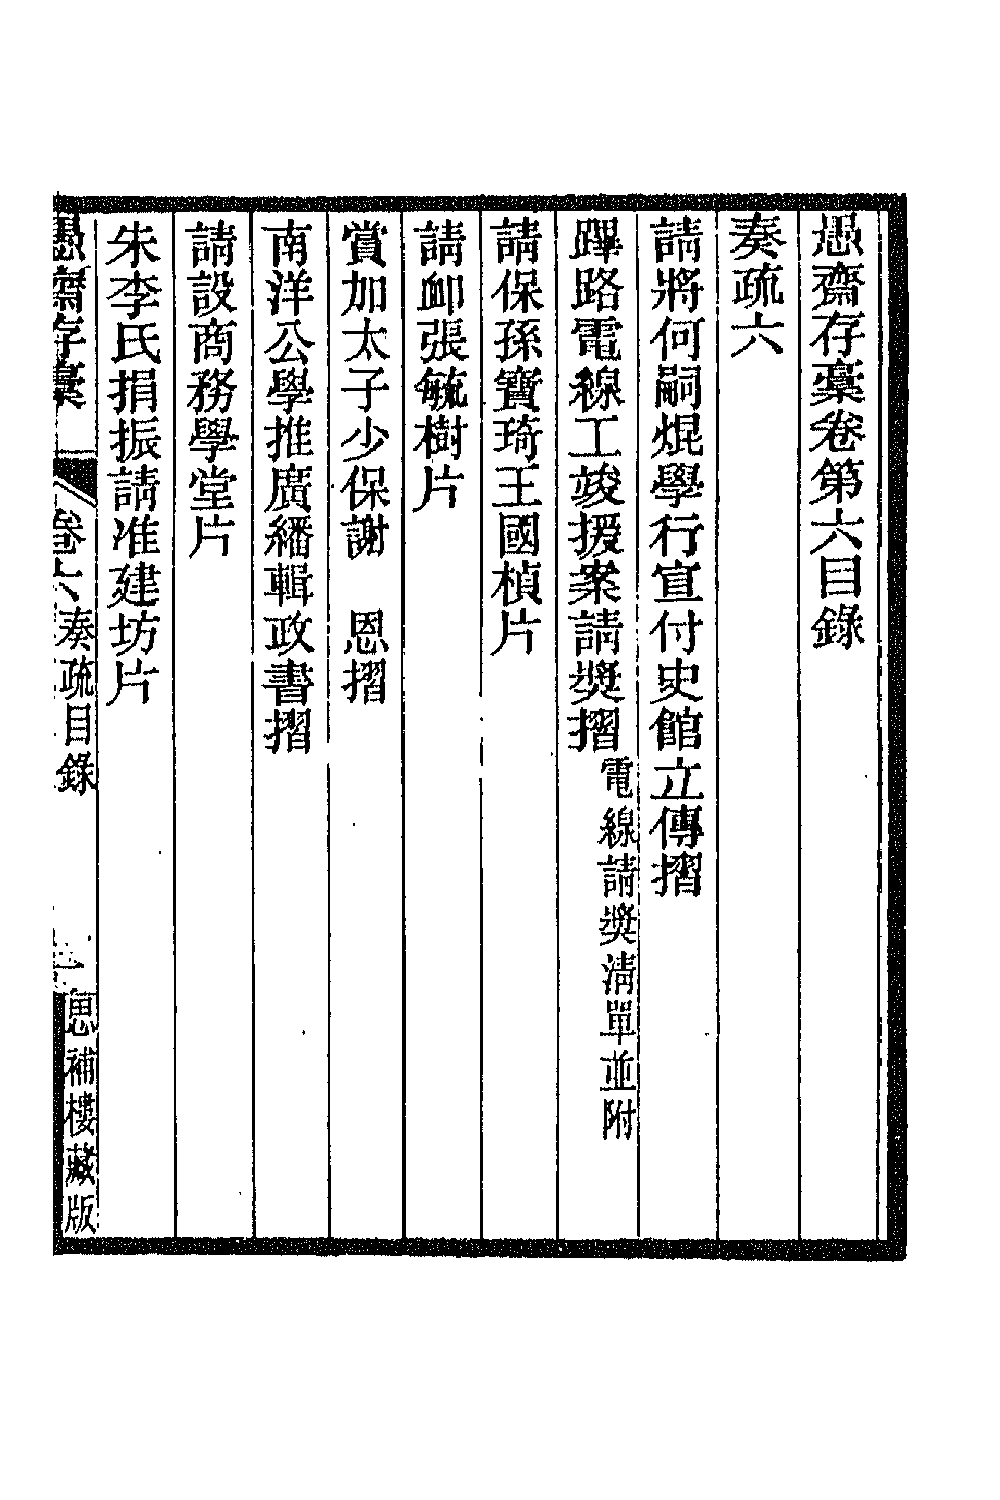 愚齋存稾卷第六目錄
奏疏六
請將何嗣焜學行宣付史館立傳摺
蹕路電線工竣援案請奬摺電線請奬淸單並附
請保孫寶琦王國楨片
請卹張毓樹片
賞加太子少保謝　恩摺
南洋公學推廣繙輯政書摺
請設商務學堂片
朱李氏捐振請准建坊片
愚齋存稾　卷六奏疏目錄　一　思補樓藏版